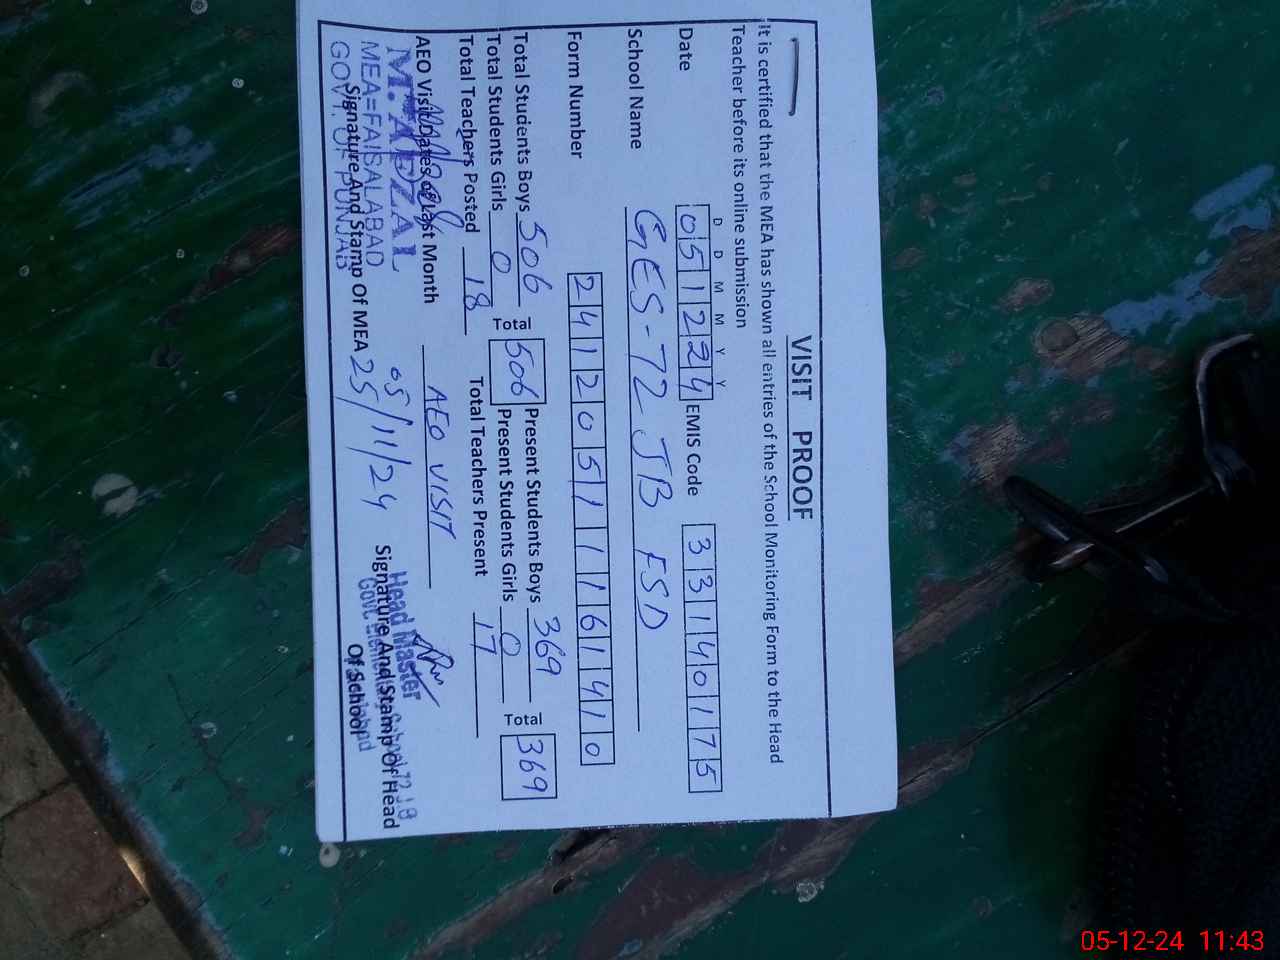 VISIT PROOF
It is certified that the MEA has shown all entries of the School Monitoring Form to the Head
Teacher before its online submission
D D M M Y Y
Date 051224 EMIS Code 33140175
School Name GES-72 JB FSD
Form Number 24120511161410
Total Students Boys 506 Total 506 Present Students Boys 369 Total 369
Total Students Girls 0 Present Students Girls 0
Total Teachers Posted 18 Total Teachers Present 17
AEO Visit Dates of Last Month AEO VISIT
05/11/24
25/11/24
M. AFZAL
MEA=FAISALABAD
GOVT. OF PUNJAB
Signature And Stamp Of MEA
Head Master
Signature And Stamp Of Head
Of School
05-12-24 11:43